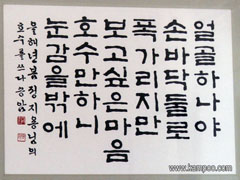 얼골하나야
손바닥둘로
폭가리지만
보고싶은마음
호수만하니
눈감을밖에
해년봄정지용님의
호수를쓰다
www.kampoo.com